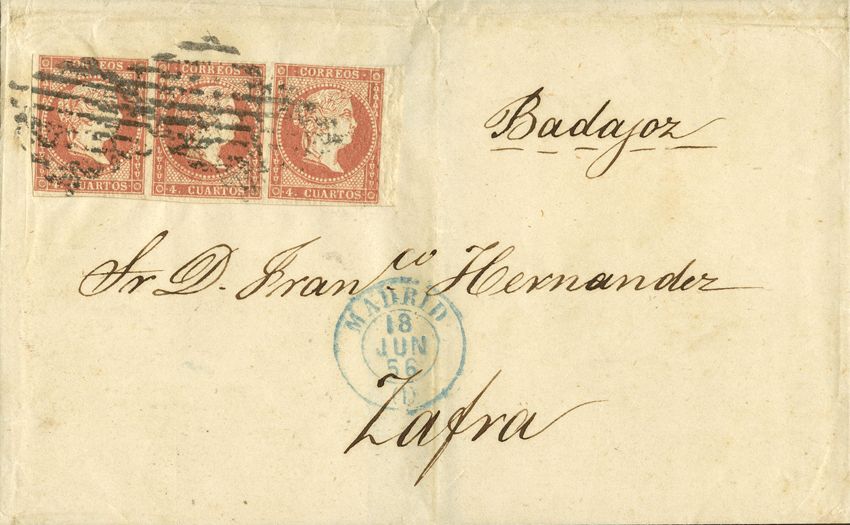 CORREOS CORREOS CORREOS
4. CUARTOS 4. CUARTOS 4. CUARTOS
Badajoz
Sr. D. Fran.co Hernandez
MADRID
18
JUN
56
Zafra